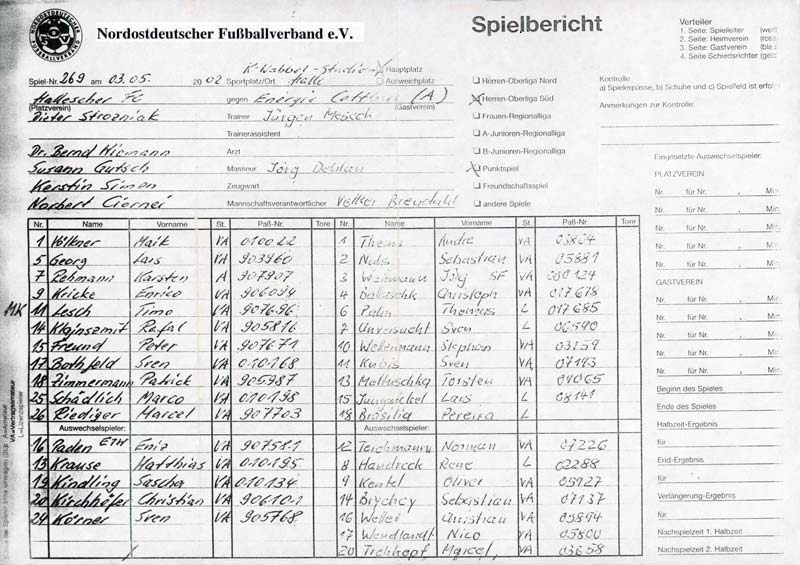 NORDOSTDEUTSCHER FUSSBALLVERBAND
Nordostdeutscher Fußballverband e.V.
Spielbericht
Verteiler
1. Seite: Spielleiter
2. Seite: Heimverein
3. Seite: Gastverein
4. Seite Schiedsrichter
Spiel-Nr. 269 am 03.05. 2002 Sportplatz/Ort Halle
Hauptplatz
Ausweichplatz
Hallescher FC gegen Energie Cottbus (A)
(Platzverein) (Gastverein)
Dieter Strozniak Trainer Jürgen
Trainerassistent
Dr. Bernd Arzt
Susann Gutsch Masseur Jörg
Kerstin Simon Zeugwart
Norbert Mannschaftsverantwortlicher
Herren-Oberliga Nord
Herren-Oberliga Süd
Frauen-Regionalliga
A-Junioren-Regionalliga
B-Junioren-Regionalliga
Punktspiel
Freundschaftsspiel
andere Spiele
Kontrolle
a) Spielerpässe, b) Schuhe und c) Spielfeld ist
Anmerkungen zur Kontrolle:
Nr. Name Vorname St. Paß-Nr. Tore Nr. Name Vorname St. Paß-Nr. Tore
1 Maik VA 010022 1 Andre VA
5 Georg Lars VA 903960 2 Sebastian VA 05881
7 Rehmann Karsten A 907907 3 Jörg SF VA
9 Kricke Enrico VA 4 Christoph VA 017678
MK 11 Lesch Timo VA 907696 6 Thomas L 017685
14 Rafal VA 905816 7 Unversucht Sven L 06590
15 Freund Peter VA 907671 10 Stephan VA 03159
17 Bothfeld Sven VA 010168 11 Kubis Sven VA
18 Zimmermann Patrick VA 905987 13 Mattuschka Torsten VA
25 Schädlich Marco VA 010198 15 Jungnickel Lars L 08141
26 Riediger Marcel VA 907703 18 Brasilia Pereira L
Auswechselspieler: Auswechselspieler:
16 Paden ETW VA 12 Teichmann Norman VA 07226
13 Krause Matthias VA 010195 8 Handreck Rene L 02288
19 Kindling Sascha VA 010134 9 Oliver VA
20 Kirchhöfer Christian VA 906101 14 Brychcy Sebastian VA 07137
24 Körner Sven VA 905768 16 Christian VA 05894
17 Wendlandt Nico VA 05800
20 Marcel VA 03658
Eingesetzte Auswechselspieler:
PLATZVEREIN
Nr. für Nr. , Min.
Nr. für Nr. , Min.
Nr. für Nr. , Min.
Nr. für Nr. , Min.
GASTVEREIN
Nr. für Nr. , Min.
Nr. für Nr. , Min.
Nr. für Nr. , Min.
Nr. für Nr. , Min.
Beginn des Spieles
Ende des Spieles
Halbzeit-Ergebnis
für
End-Ergebnis
für
Verlängerung-Ergebnis
für
Nachspielzeit 1. Halbzeit
Nachspielzeit 2. Halbzeit
VA=Vertragsamateur
L=Lizenzspieler